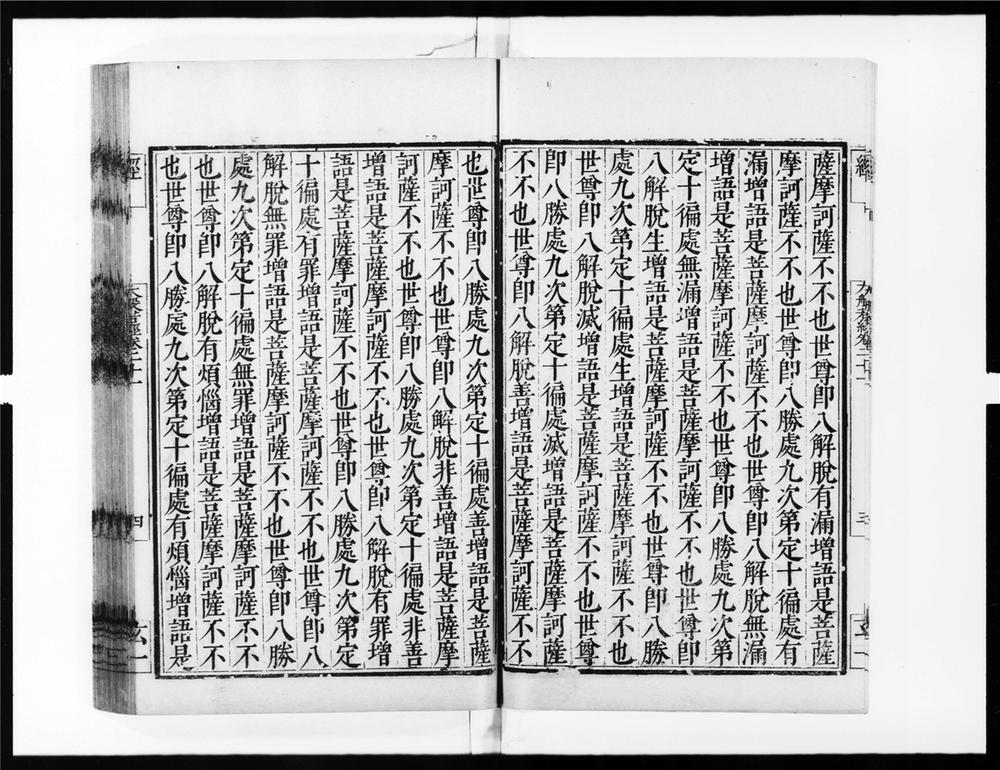 經 三
薩摩訶薩不不也世尊卽八解脫有漏增語是菩薩
摩訶薩不不也世尊卽八勝處九次第定十徧處有
漏增語是菩薩摩訶薩不不也世尊卽八解脫無漏
增語是菩薩摩訶薩不不也世尊卽八勝處九次第
定十徧處無漏增語是菩薩摩訶薩不不也世尊卽
八解脫生增語是菩薩摩訶薩不不也世尊卽八勝
處九次第定十徧處生增語是菩薩摩訶薩不不也
世尊卽八解脫滅增語是菩薩摩訶薩不不也世尊
卽八勝處九次第定十徧處滅增語是菩薩摩訶薩
不不也世尊卽八解脫善增語是菩薩摩訶薩不不
也世尊卽八勝處九次第定十徧處善增語是菩薩
摩訶薩不不也世尊卽八解脫非善增語是菩薩摩
訶薩不不也世尊卽八勝處九次第定十徧處非善
增語是菩薩摩訶薩不不也世尊卽八解脫有罪增
語是菩薩摩訶薩不不也世尊卽八勝處九次第定
十徧處有罪增語是菩薩摩訶薩不不也世尊卽八
解脫無罪增語是菩薩摩訶薩不不也世尊卽八勝
處九次第定十徧處無罪增語是菩薩摩訶薩不不
也世尊卽八解脫有煩惱增語是菩薩摩訶薩不不
也世尊卽八勝處九次第定十徧處有煩惱增語是
經 四 玄一